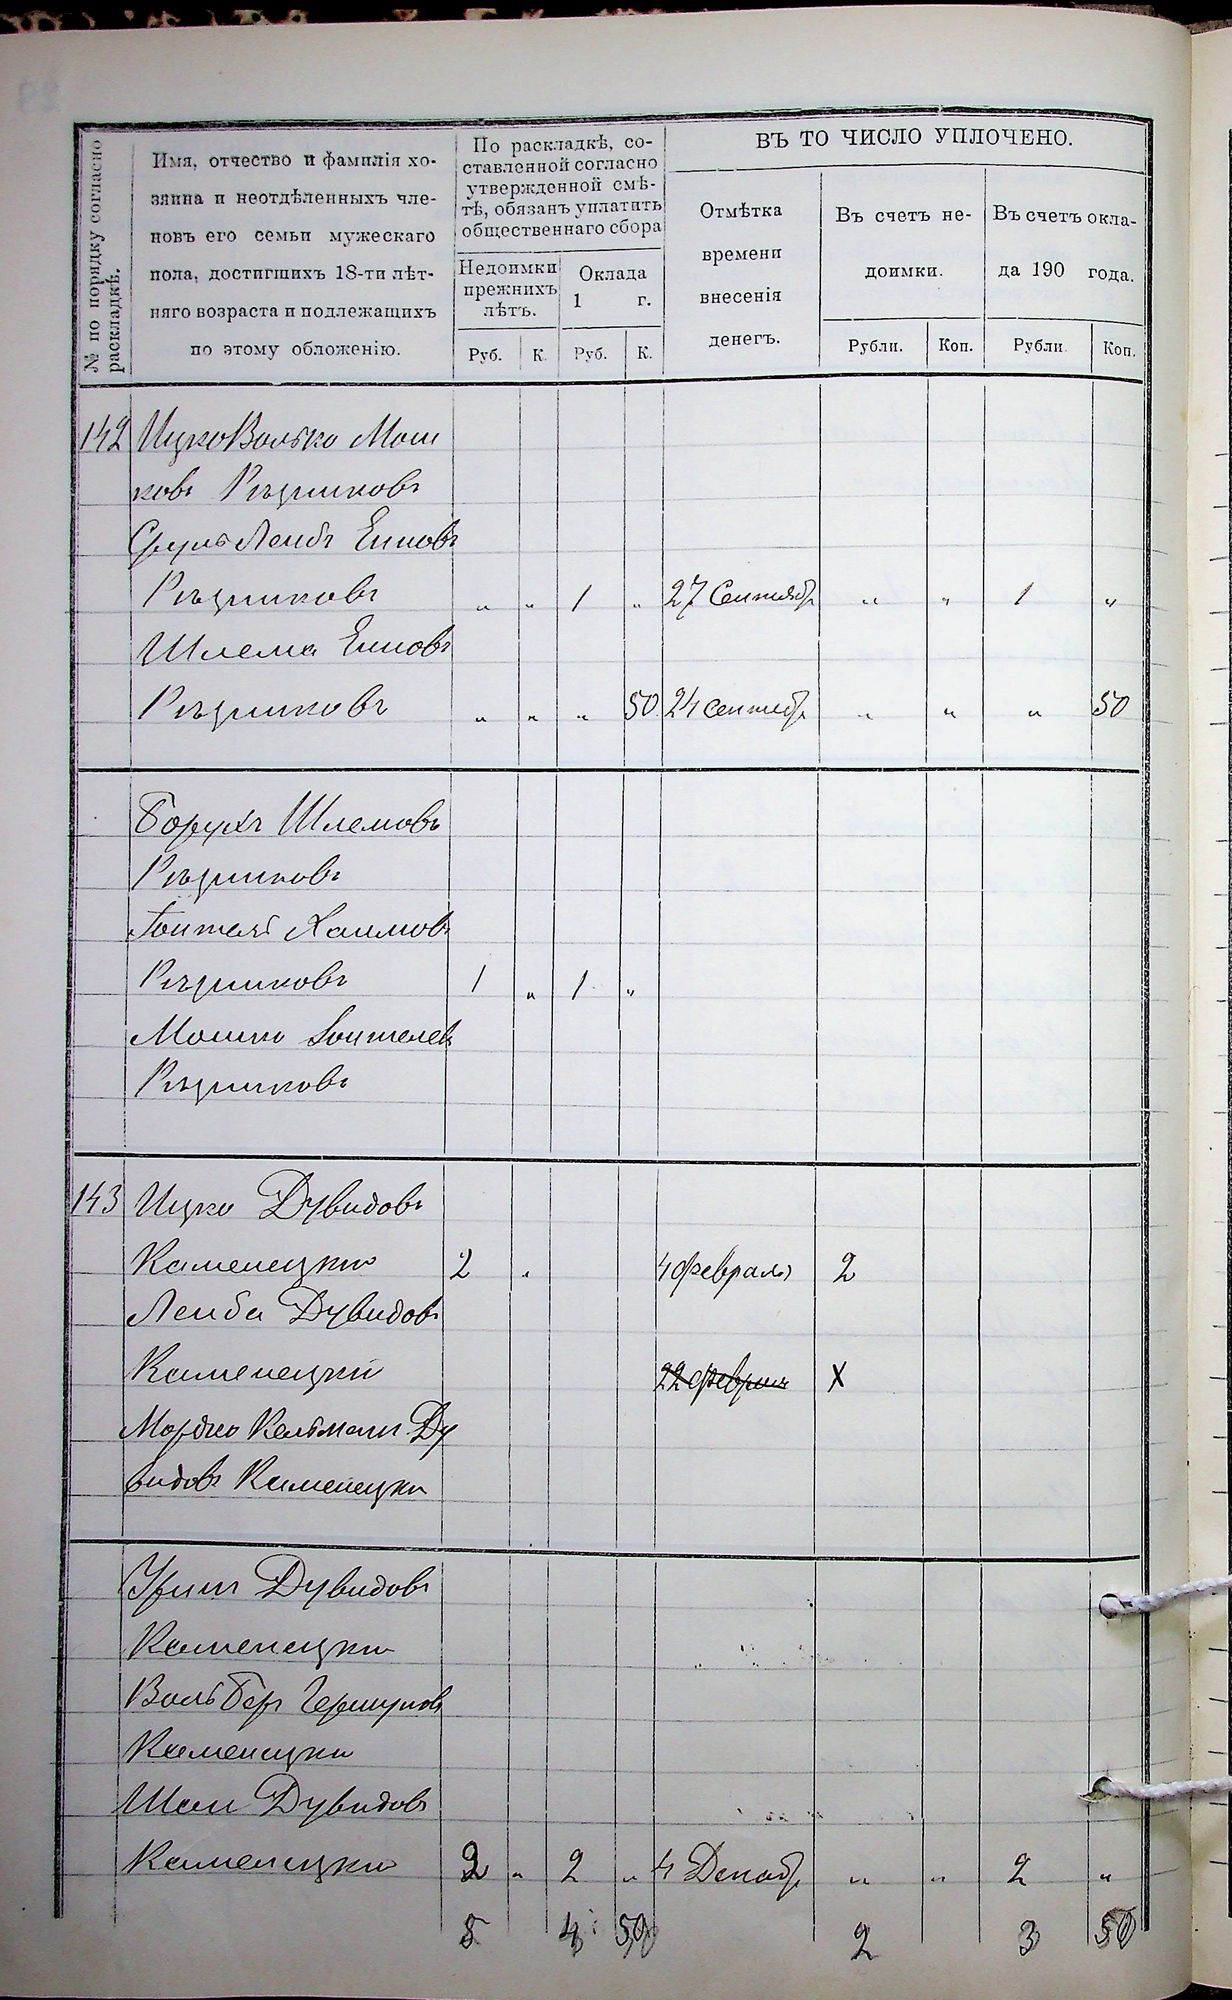 № по порядку согласно раскладкѣ.
Имя, отчество и фамилія хо-
зяина и неотдѣленныхъ чле-
новъ его семьи мужескаго
пола, достигшихъ 18-ти лѣт-
няго возраста и подлежащихъ
по этому обложенію.
По раскладкѣ, со-
ставленной согласно
утвержденной смѣ-
тѣ, обязанъ уплатить
общественнаго сбора
Недоимки
прежнихъ
лѣтъ.
Оклада
1 г.
Руб. К. Руб. К.
ВЪ ТО ЧИСЛО УПЛОЧЕНО.
Отмѣтка
времени
внесенія
денегъ.
Въ счетъ не-
доимки.
Въ счетъ окла-
да 190 года.
Рубли. Коп. Рубли. Коп.
142 Ицко Волько Мош
ковъ Рѣзниковъ
Сруль Лейбъ
Рѣзниковъ „ „ 1 „ 27 Сентябр „ „ 1 „
Шлема
Рѣзниковъ „ „ „ 50 24 Сентябр „ „ „ 50
Борухъ Шлемовъ
Рѣзниковъ
Хаимовъ
Рѣзниковъ 1 „ 1 „
Мошко
Рѣзниковъ
143 Ицко Дувидовъ
Каменецкій 2 „ 4 февраля 2
Лейба Дувидовъ
Каменецкій 22 февраля X
Мордко Кельманъ Ду
видовъ Каменецкій
Дувидовъ
Каменецкій
Воль Беръ Гершуновъ
Каменецкій
Дувидовъ
Каменецкій 2 „ 2 „ 4 Декабр „ „ 2 „
5 4 50 2 3 50